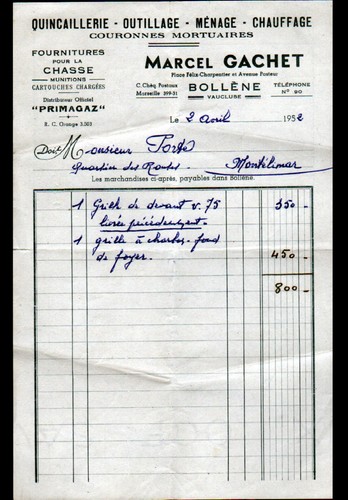 QUINCAILLERIE - OUTILLAGE - MÉNAGE - CHAUFFAGE
COURONNES MORTUAIRES
FOURNITURES
POUR LA
CHASSE
MUNITIONS
CARTOUCHES CHARGÉES
Distributeur Officiel
"PRIMAGAZ"
R. C. Orange 3.003
MARCEL GACHET
Place Félix-Charpentier et Avenue Pasteur
C. Chèq. Postaux
Marseille 399-31
BOLLÈNE
VAUCLUSE
TÉLÉPHONE
N° 90
Le 2 avril 1952
Doit Monsieur
Quartier des Montélimar
Les marchandises ci-après, payables dans Bollène.
1 Grille de devant v. 75 350 -
livrée précédemment.
1 grille à charbon fond
de foyer. 450 -
800 -